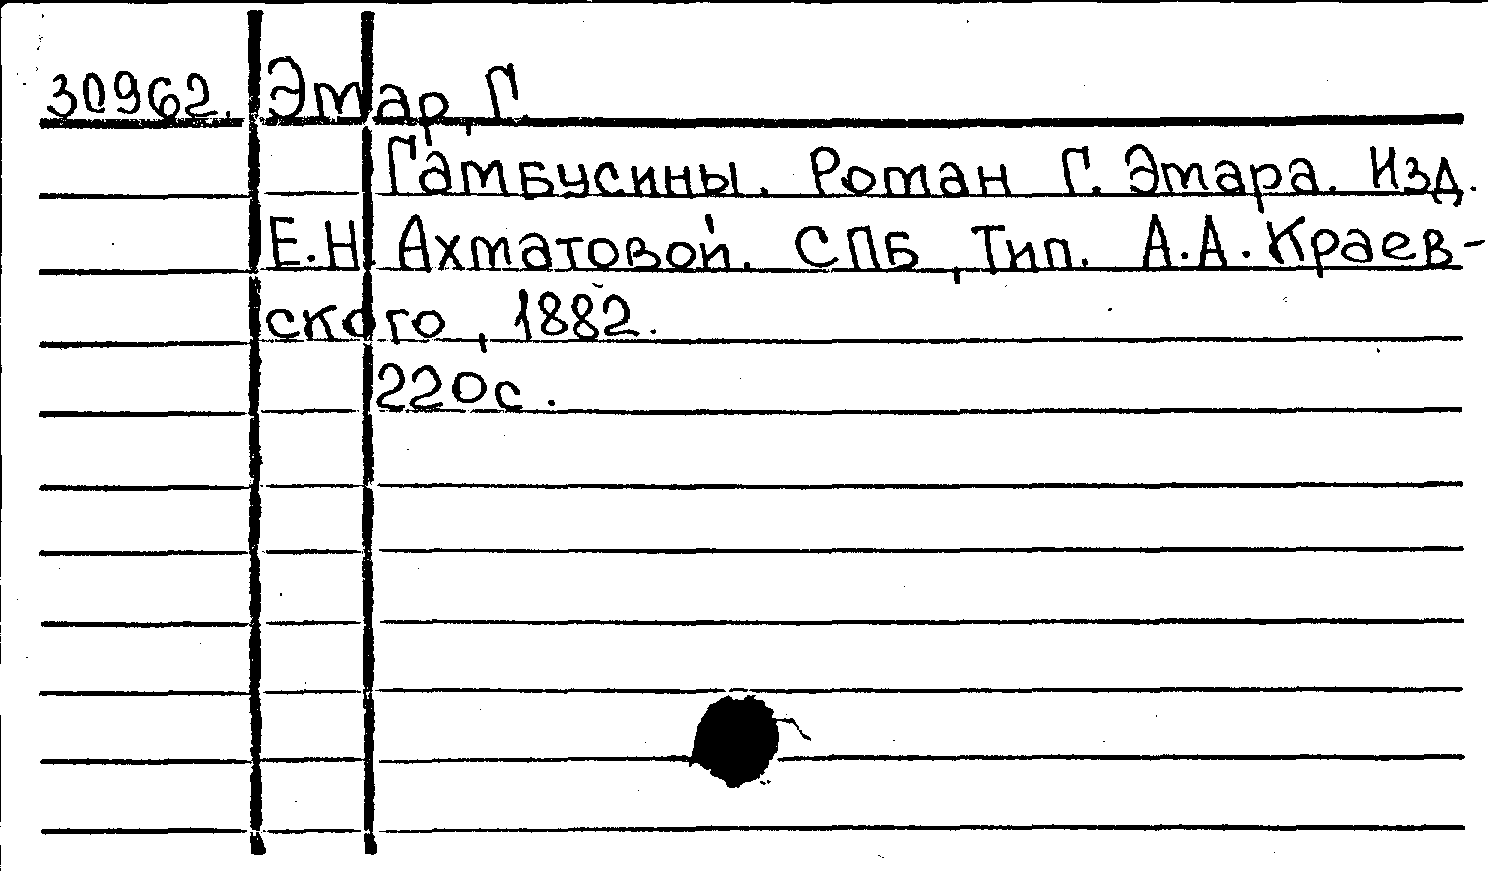 30962. Эмар, Г.
Гамбусины. Роман Г. Эмара. Изд.
Е.Н. Ахматовой. СПБ, Тип. А.А. Краев-
ского, 1882.
220с.